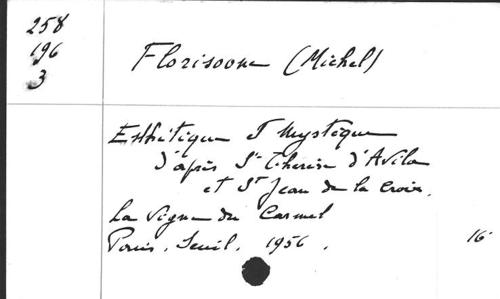 258
196
3
Florisoone (Michel)
Esthétique et Mystique
d'après Ste Thérèse d'Avila
et St Jean de la Croix.
La Vigne du Carmel
Paris, Seuil, 1956.
16°